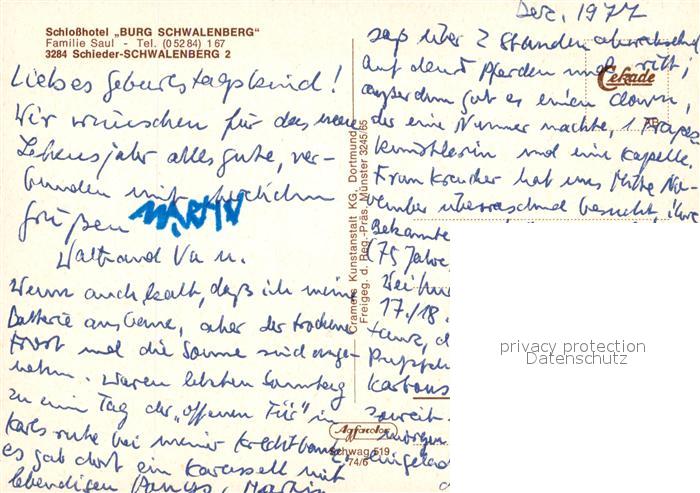 Schloßhotel „BURG SCHWALENBERG“
Familie Saul - Tel. (0 52 84) 1 67
3284 Schieder-SCHWALENBERG 2
Liebes Geburtstagskind!
Wir wünschen für das neue
Lebensjahr alles gute, ver-
bunden mit herzlichen
Grüßen MARTIN
Waltraud
Wenn auch kalt, daß ich meine
Batterie aber der trockene
Frost und die Sonne sind ange-
nehm. Waren letzten Sonntag
zu ein Tag der „offenen Tür“ in
Karlsruhe bei meiner Kreditbank,
es gab dort ein Karussell mit
lebendigen Ponys, Martin
Cramers Kunstanstalt KG, Dortmund
Freigeg. d. Reg.-Präs. Münster 3245/65
Agfacolor
Schwag 519
74/6
Dez. 1977
saß über 2 Stunden abwechselnd
auf den Pferden und ritt;
Cekade
außerdem gab es einen Clown,
der eine Nummer machte, 1 Trapez
künstlerin und eine Kapelle.
Frau hat uns Mitte No-
vember überraschend besucht, ihre
Bekannte
(75 Jahre,
17./18.
tanz, d
Kartons
soweit
morgen
eingelad
privacy protection
Datenschutz